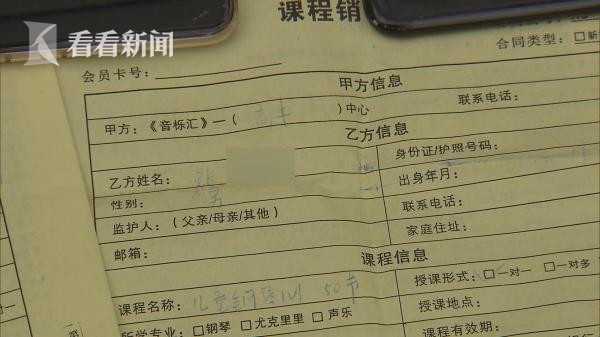 看看新闻
课程销
合同类型：□新
会员卡号：
甲方信息
甲方：《音栎汇》—（ ）中心
联系电话：
乙方信息
乙方姓名：
身份证/护照号码：
性别：男
出身年月：
监护人：（父亲/母亲/其他）
联系电话：
邮箱：
家庭住址：
课程信息
课程名称：儿童 50节
授课形式：□一对一 □一对多
所学专业：□钢琴 □尤克里里 □声乐
授课地点：
课程有效期：